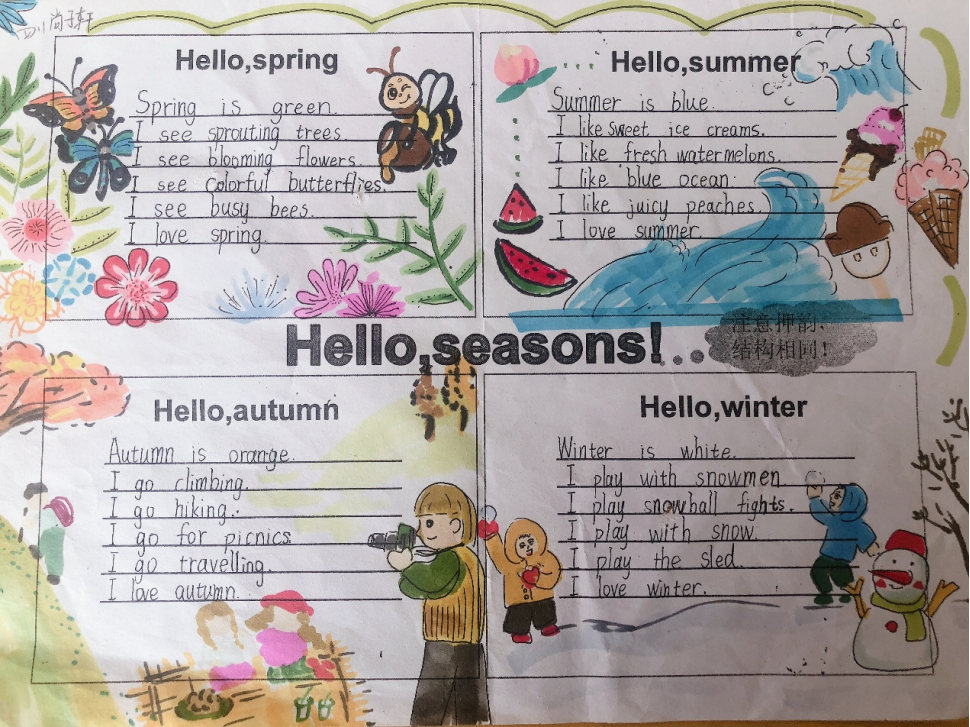 四川 尚子轩
Hello,spring
Spring is green.
I see sprouting trees.
I see blooming flowers.
I see colorful butterflies.
I see busy bees.
I love spring.
Hello,summer
Summer is blue.
I like sweet ice creams.
I like fresh watermelons.
I like blue ocean.
I like juicy peaches.
I love summer.
Hello,seasons!...
注意押韵,
结构相同!
Hello,autumn
Autumn is orange.
I go climbing.
I go hiking.
I go for picnics.
I go travelling.
I love autumn.
Hello,winter
Winter is white.
I play with snowmen.
I play snowball fights.
I play with snow.
I play the sled.
I love winter.